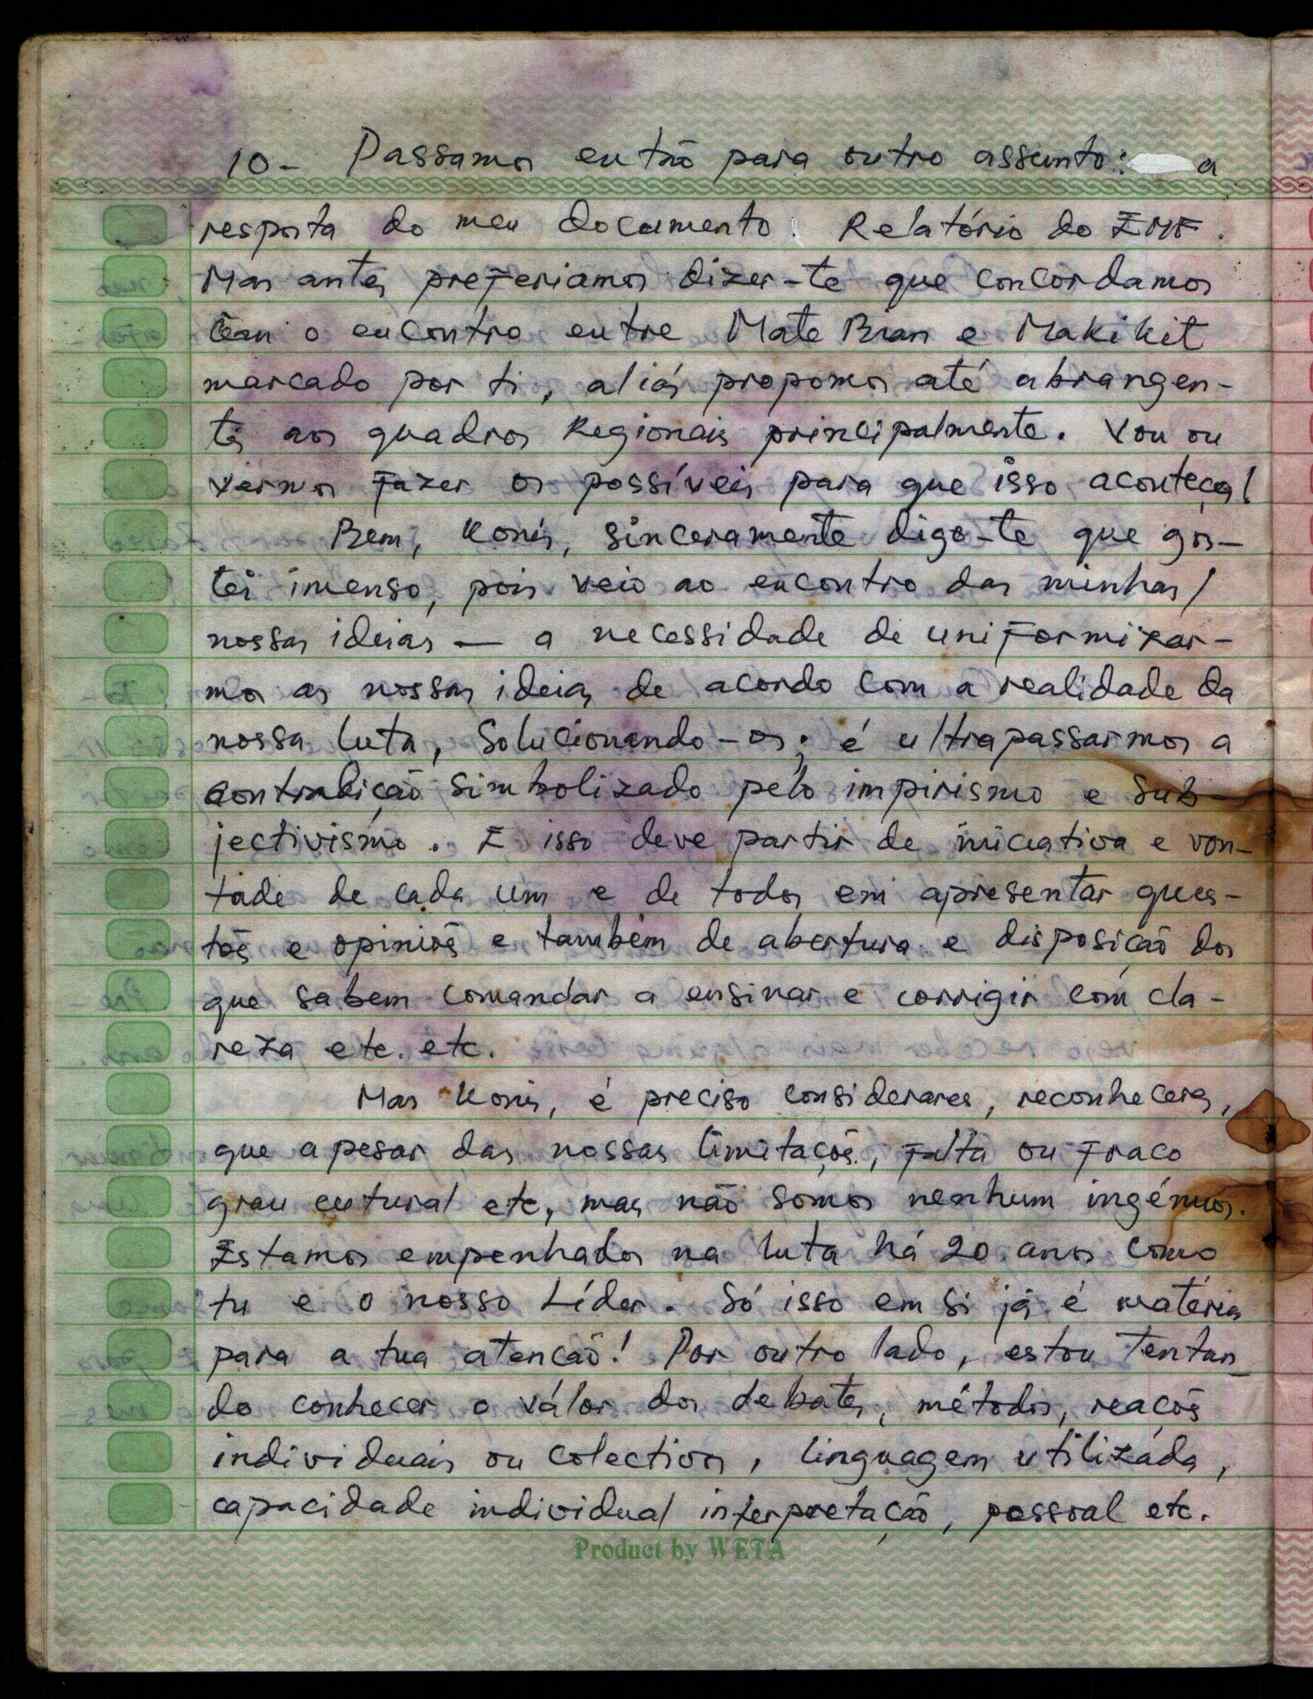 10- Passamos então para outro assunto: a
resposta do meu documento: Relatório do EMF.
Mas antes preferiamos dizer-te que concordamos
com o encontro entre Mate Bian e Makikit
marcado por ti, aliás propomos até abrangen-
tes aos quadros Regionais principalmente. Vou ou
vermos fazer os possíveis para que isso aconteça!
Bem, Konis, sinceramente digo-te que gos-
tei imenso, pois veio ao encontro das minhas/
nossas ideias — a necessidade de uniformizar-
mos as nossas ideias de acordo com a realidade da
nossa luta, solucionando-os; é ultrapassarmos a
contradição simbolizado pelo impirismo e sub-
jectivismo. E isso deve partir de iniciativa e von-
tade de cada um e de todos em apresentar ques-
tõs e opiniõs e também de abertura e disposição dos
que sabem comandar a ensinar e corrigir com cla-
reza etc. etc.
Mas Konis, é preciso considerares, reconheceres,
que apesar das nossas limitaçõs, falta ou fraco
grau cutural etc, mas não somos nenhum ingénuos.
Estamos empenhados na luta há 20 anos como
tu e o nosso Líder. Só isso em si já é matéria
para a tua atenção! Por outro lado, estou tentan-
do conhecer o válor dos debates, métodos, reaçõs
individuais ou colectivos, linguagem utilizada,
capacidade individual interpretação, pessoal etc.
Product by WETA